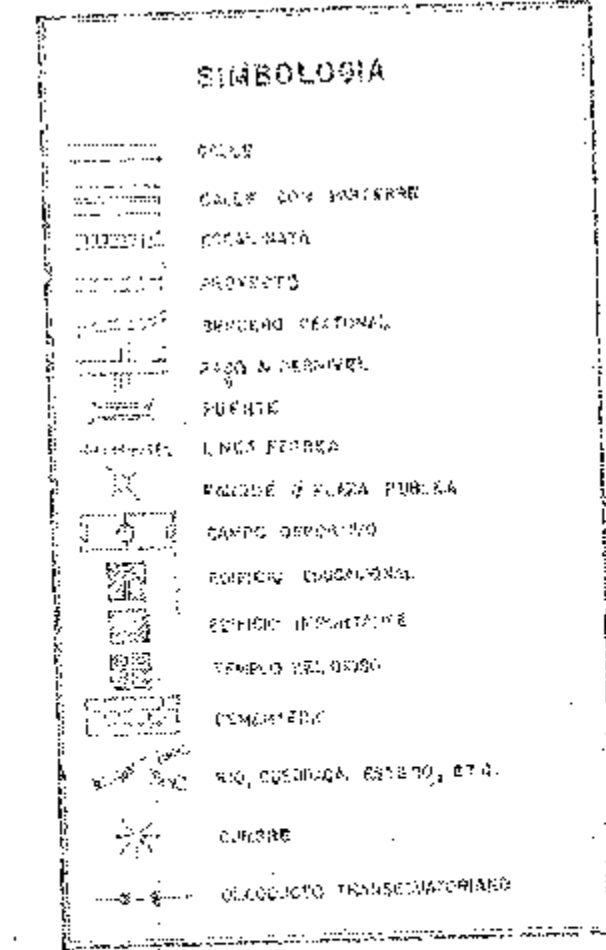 SIMBOLOGIA
CALLE
CALLE CON PARTERRE
ESCALINATA
PROYECTO
SENDERO PEATONAL
PASO A DESNIVEL
PUENTE
LINEA FERREA
PARQUE O PLAZA PUBLICA
CAMPO DEPORTIVO
EDIFICIO EDUCACIONAL
EDIFICIO IMPORTANTE
TEMPLO RELIGIOSO
CEMENTERIO
RIO, QUEBRADA, ESTERO, ETC.
CUMBRE
OLEODUCTO TRANSECUATORIANO